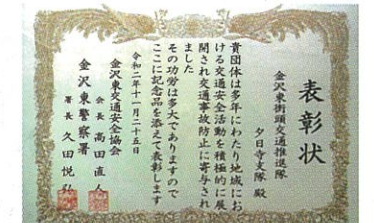 表彰状
金沢東街頭交通推進隊
夕日寺支隊 殿
貴団体は多年にわたり地域にお
ける交通安全活動を積極的に展
開され交通事故防止に寄与され
ました
その功労は多大でありますので
ここに記念品を添えて表彰します
令和二年十一月二十五日
金沢東交通安全協会
会長 高田直人
金沢東警察署
署長 久田悦弘